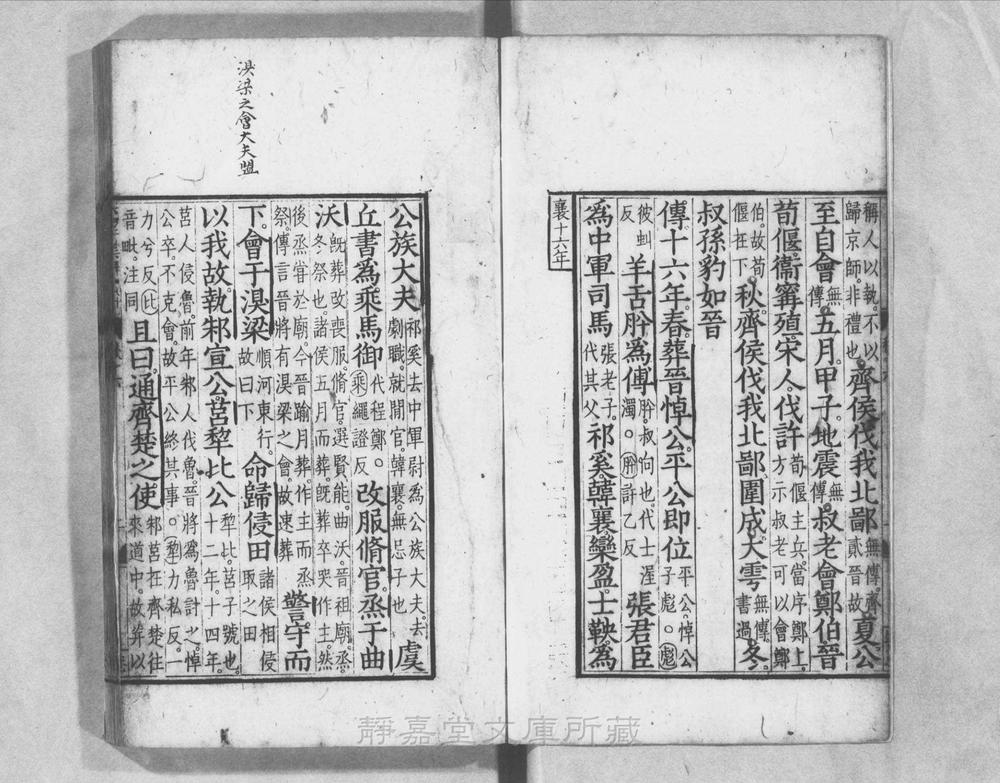 稱人以執不以歸京師非禮也齊侯伐我北鄙無傳齊貳晉故夏公
至自會無傳五月甲子地震無傳叔老會鄭伯晉
荀偃衞甯殖宋人伐許荀偃主兵當序鄭上方示叔老可以會鄭
伯故荀偃在下秋齊侯伐我北鄙圍成大雩無傳書過冬
叔孫豹如晉
傳十六年春葬晉悼公平公即位平公悼公子彪。彪
彼虯反羊舌肸為傅肸叔向也代士渥濁。肸許乙反張君臣
為中軍司馬張老子代其父祁奚韓襄欒盈士鞅為
襄十六年
公族大夫祁奚去中軍尉為公族大夫去劇職就閒官韓襄無忌子也虞
丘書為乘馬御代程鄭。乘繩證反改服脩官烝于曲
沃既葬改喪服脩官選賢能曲沃晉祖廟烝冬祭也諸侯五月而葬既葬卒哭作主然
後烝嘗於廟今晉踰月葬作主而烝祭傳言晉將有湨梁之會故速葬警守而
下會于湨梁順河東行故曰下命歸侵田諸侯相侵取之田
以我故執邾宣公莒犂比公犂比莒子號也十二年十四年
莒人侵魯前年邾人伐魯晉將為魯討之悼公卒不克會故平公終其事。犂力私反一
力兮反比音毗注同且曰通齊楚之使邾莒在齊楚往來道中故并以
湨梁之會大夫盟
靜嘉堂文庫所藏